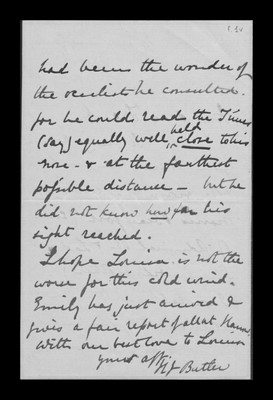 had been the wonder of
the oculist he consulted.
for he could read the Times
(say) equally well, held close to his
nose - & at the farthest
possible distance - but he
did not know how far his
sight reached.
I hope Louisa is not the
worse for this cold wind.
Emily has just arrived &
gives a fair report of all at
With our best love to Louisa
yours affly
Butler